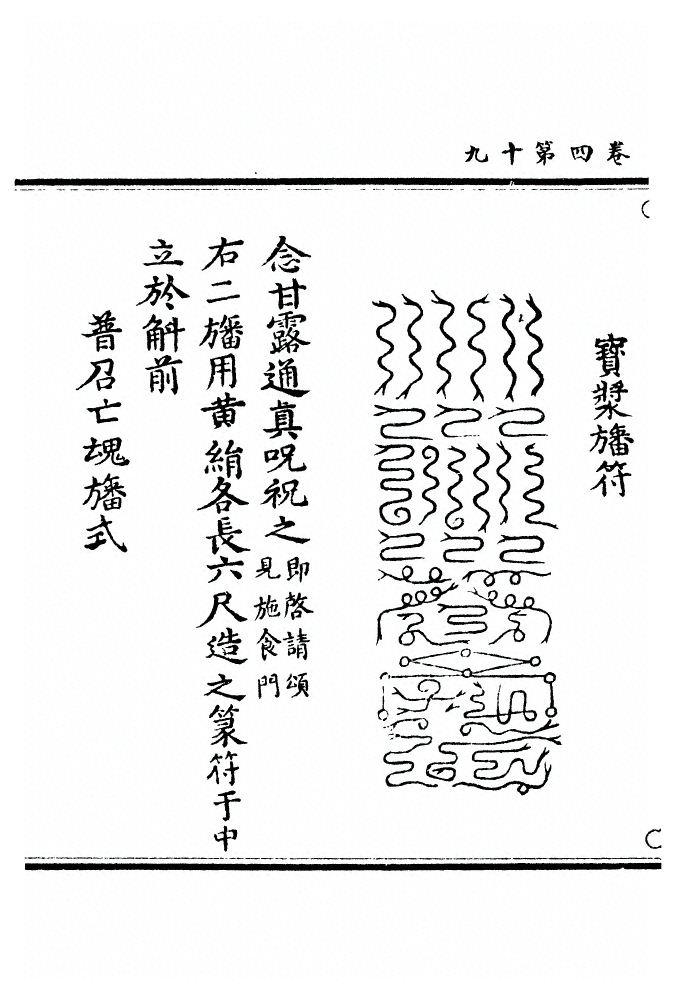 卷四第十九
寶漿旛符
念甘露通真呪祝之即啓請頌見施食門
右二旛用黄絹各長六尺造之篆符于中
立於斛前
普召亡魂旛式